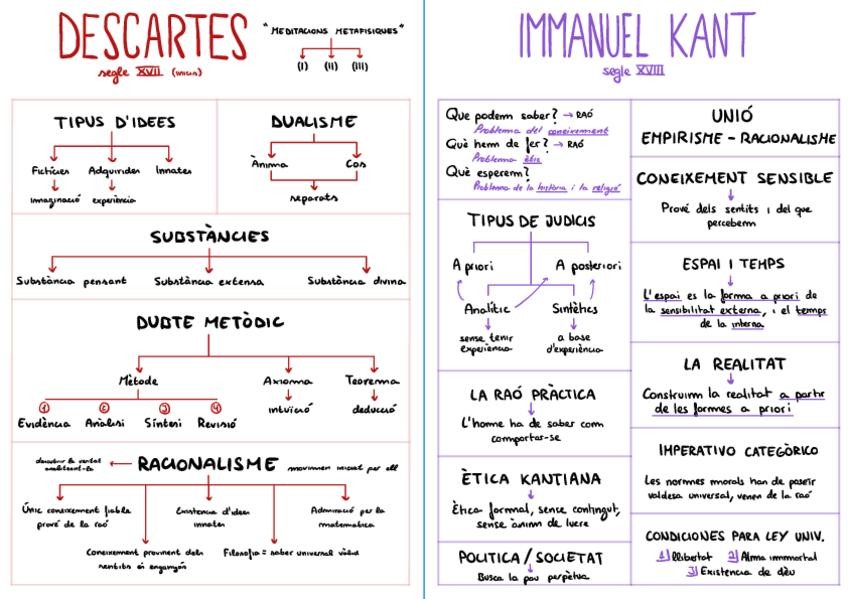 DESCARTES
segle XVII (inicis)
"MEDITACIONS METAFISIQUES"
(I) (II) (III)
TIPUS D'IDEES
Fictícies Adquirides Innates
imaginació experiència
DUALISME
Ànima Cos
separats
SUBSTÀNCIES
Substància pensant Substància extensa Substància divina
DUBTE METÒDIC
Mètode Axioma Teorema
intuïció deducció
1 2 3 4
Evidència Anàlisi Síntesi Revisió
descobrir la veritat
analitzant-la
RACIONALISME
moviment iniciat per ell
Únic coneixement fiable
prové de la raó
Existencia d'idees
innates
Admiració per la
matematica
Coneixement provinent dels
sentits és enganyós
Filosofia = saber universal vàlid
IMMANUEL KANT
segle XVIII
Que podem saber? → RAÓ
Problema del coneixement
Què hem de fer? → RAÓ
Problema ètic
Què esperem?
Problema de la història i la religió
TIPUS DE JUDICIS
A priori A posteriori
Analític Sintètics
sense tenir
experiència
a base
d'experiència
LA RAÓ PRÀCTICA
L'home ha de saber com
comportar-se
ÈTICA KANTIANA
Ètica formal, sense contingut,
sense ànim de lucre
POLITICA/SOCIETAT
Busca la pau perpètua
UNIÓ
EMPIRISME - RACIONALISME
CONEIXEMENT SENSIBLE
Prové dels sentits i del que
percebem
ESPAI I TEMPS
L'espai es la forma a priori de
la sensibilitat externa, i el temps
de la interna
LA REALITAT
Construim la realitat a partir
de les formes a priori
IMPERATIVO CATEGÒRICO
Les normes morals han de poseir
valdesa universal, venen de la raó
CONDICIONES PARA LEY UNIV.
1) llibertat 2) Alma immortal
3) Existencia de déu